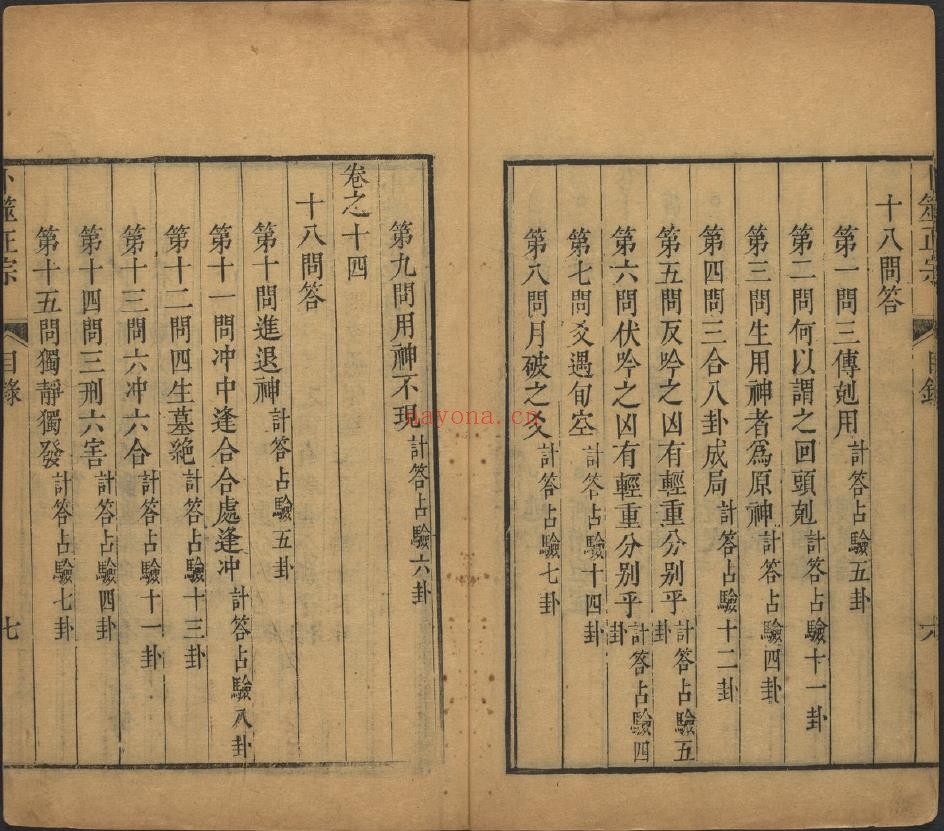 卜筮正宗
目錄
六
十八問答
第一問三傳剋用計答占驗五卦
第二問何以謂之回頭剋計答占驗十一卦
第三問生用神者爲原神計答占驗四卦
第四問三合八卦成局計答占驗十二卦
第五問反吟之凶有輕重分別乎計答占驗五卦
第六問伏吟之凶有輕重分別乎計答占驗四卦
第七問爻遇旬空計答占驗十四卦
第八問月破之爻計答占驗七卦
第九問用神不現計答占驗六卦
卷之十四
十八問答
第十問進退神計答占驗五卦
第十一問冲中逢合合處逢冲計答占驗八卦
第十二問四生墓絶計答占驗十三卦
第十三問六冲六合計答占驗十一卦
第十四問三刑六害計答占驗四卦
第十五問獨靜獨發計答占驗七卦
卜筮正宗
目錄
七
nayona.cn